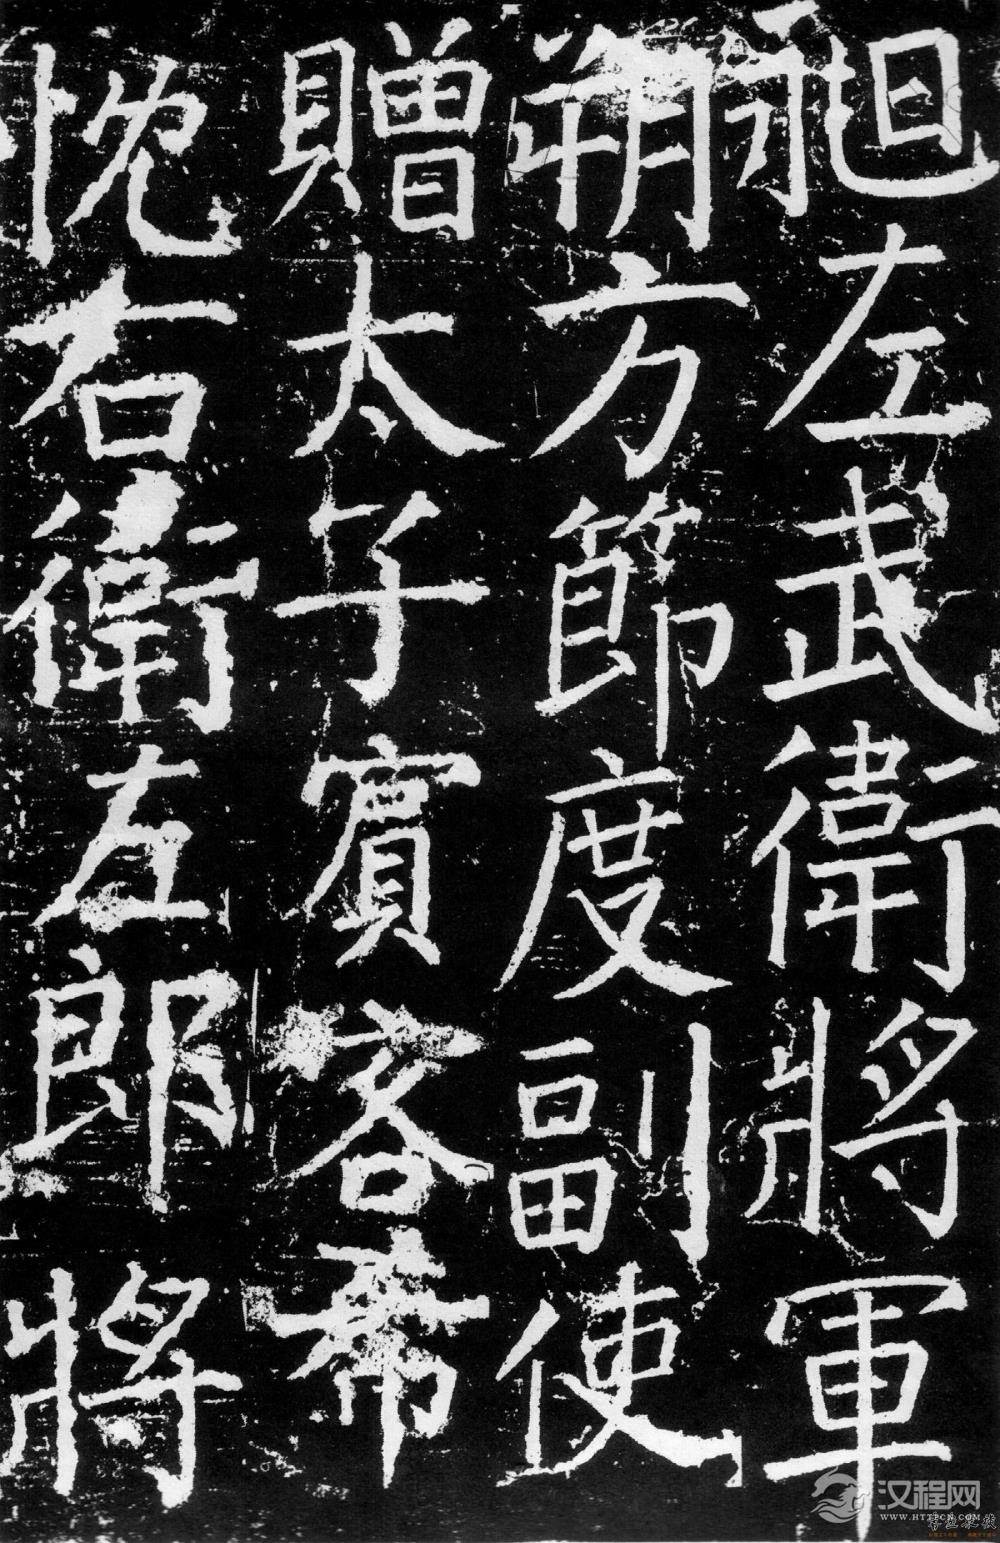 左武衛將軍
朔方節度副使
贈太子賓客希
忱右衛左郎將
汉程网
WWW.HTTPCN.COM